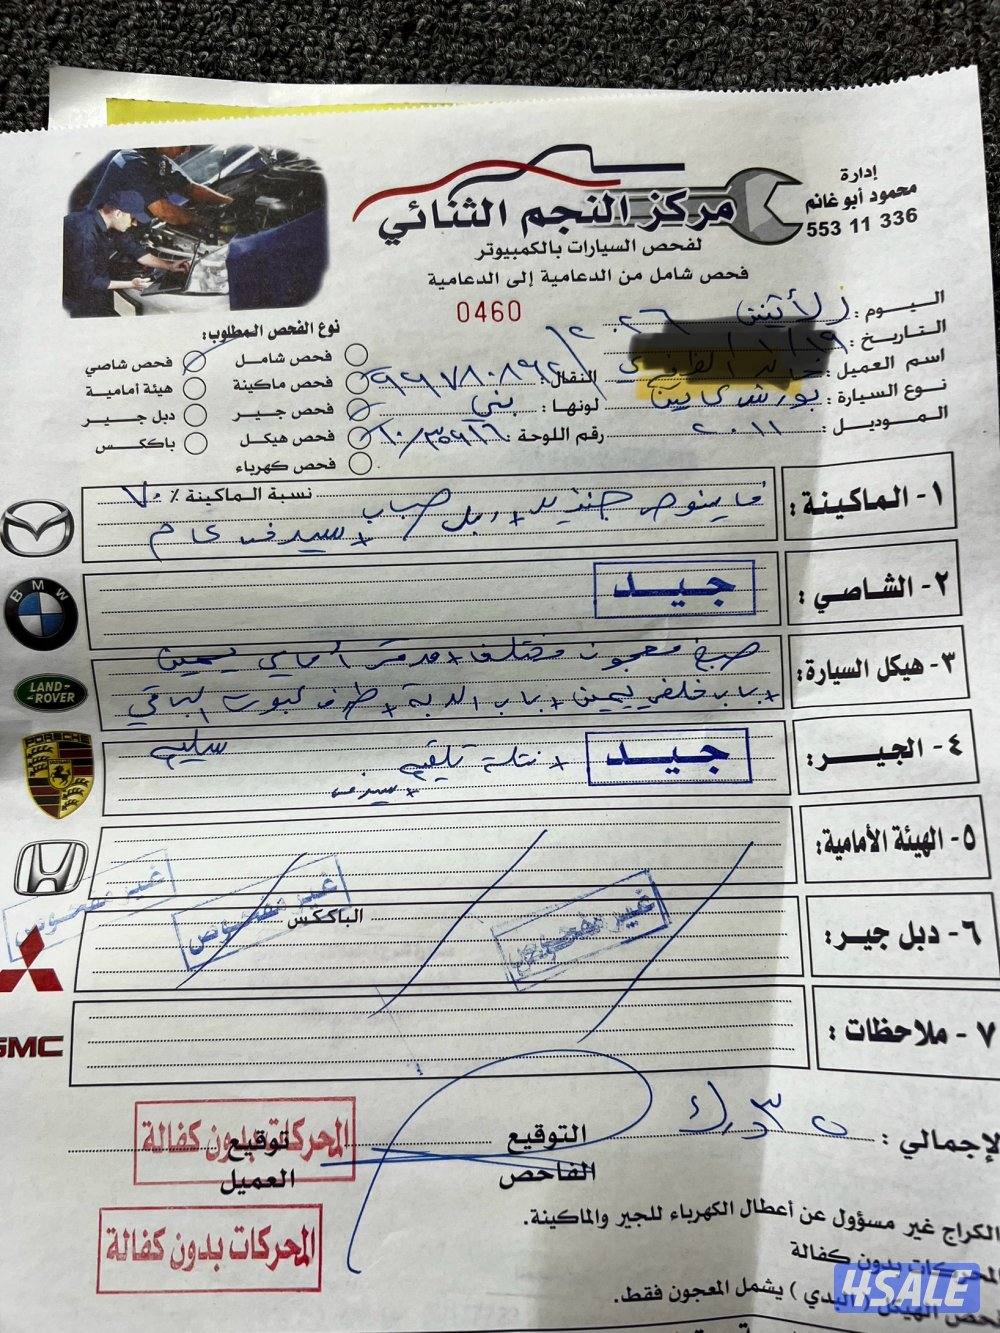 إدارة
محمود أبو غانم
553 11 336
مركز النجم الثنائي
لفحص السيارات بالكمبيوتر
فحص شامل من الدعامية إلى الدعامية
0460
اليوم:
التاريخ: ١٩/١/٢٠٢٦
اسم العميل:
النقال:
نوع السيارة: بورش كايين
لونها: بني
الموديل: ٢٠١١
رقم اللوحة:
نوع الفحص المطلوب:
فحص شامل
فحص شاصي
فحص ماكينة
هيئة أمامية
فحص جير
دبل جير
فحص هيكل
باككس
فحص كهرباء
١- الماكينة:
نسبة الماكينة ٪ ٧٠
+ سيدفس عام
٢- الشاصي:
جيد
٣- هيكل السيارة:
صبغ معجون مختلف + مدقر أمامي يمين
+ باب خلفي يمين + باب الدبة + طرف كبوت الباقي
سليم
٤- الجير:
جيد
+ نتلة تليقيم
٥- الهيئة الأمامية:
غير مفحوص
غير مفحوص
الباككس
غير مفحوص
٦- دبل جير:
٧- ملاحظات:
الإجمالي: ٣٠ د.ك
التوقيع
الفاحص
توقيع
العميل
المحركات بدون كفالة
المحركات بدون كفالة
الكراج غير مسؤول عن أعطال الكهرباء للجير والماكينة.
المحركات بدون كفالة
فحص الهيكل (البدي) يشمل المعجون فقط.
MAZDA
BMW
LAND-
ROVER
PORSCHE
GMC
4SALE